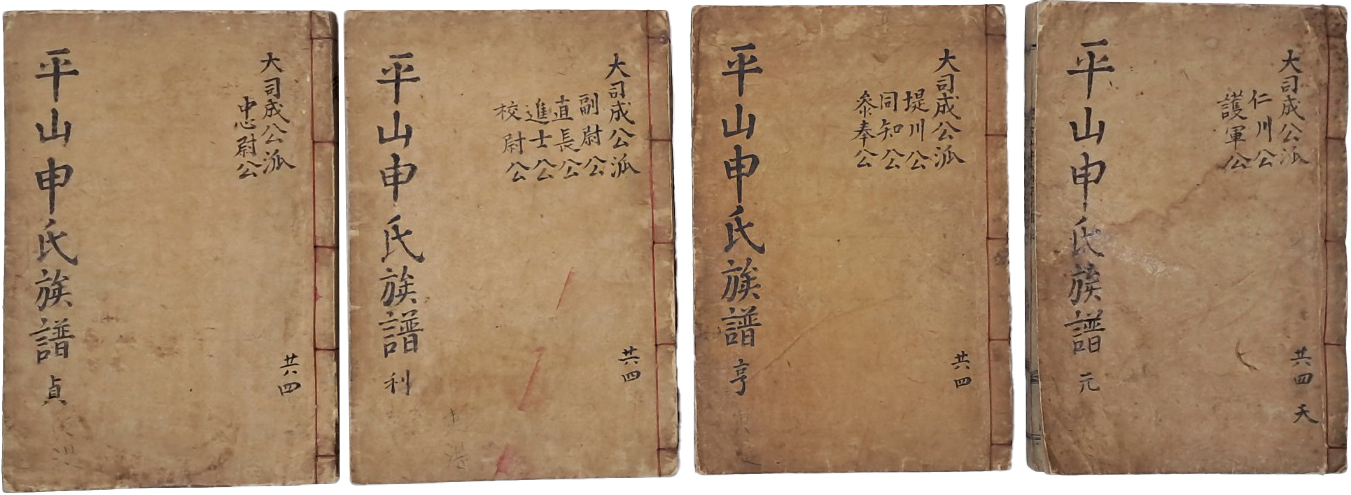 大司成公派
仁川公
護軍公
共四
天
平山申氏族譜 元
大司成公派
堤川公
同知公
叅奉公
共四
平山申氏族譜 亨
大司成公派
副尉公
直長公
進士公
校尉公
共四
平山申氏族譜 利
大司成公派
忠尉公
共四
平山申氏族譜 貞